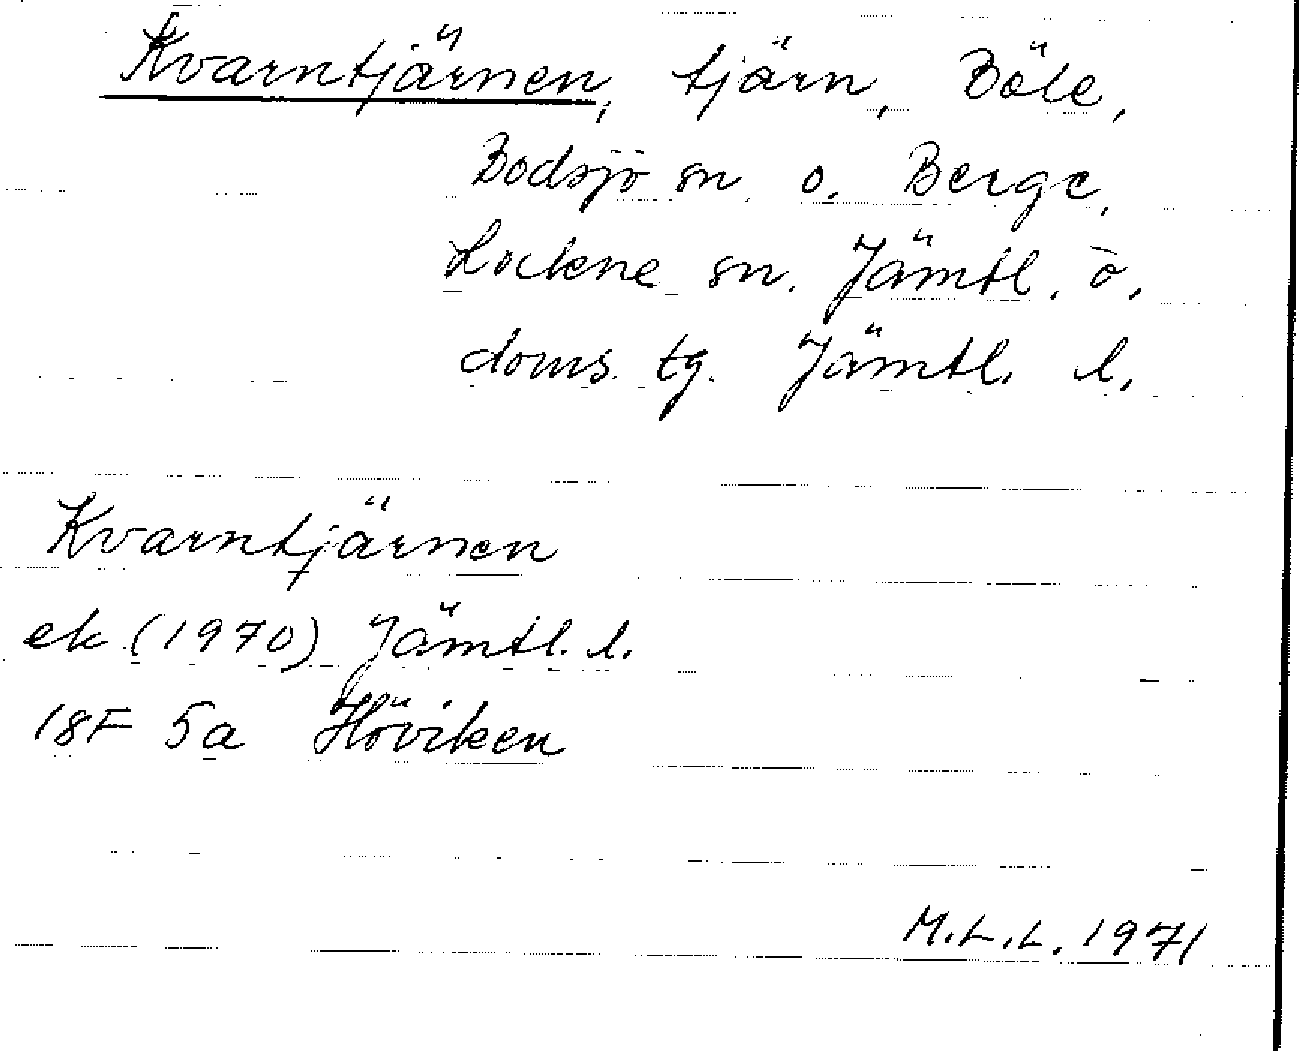 Kvarntjärnen, tjärn, Böle,
Bodsjö sn o. Berge,
Lockne sn. Jämtl. ö.
doms. tg. Jämtl. l.
Kvarntjärnen
ek (1970) Jämtl. l.
18F 5a Höviken
M.L.L. 1971